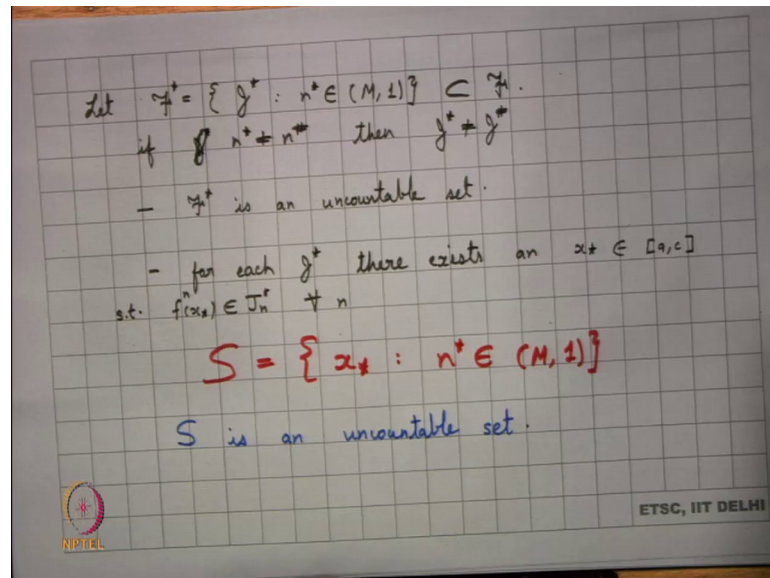 Let 𝓕* = { J* : n* ∈ (M, 1)} ⊂ 𝓕.
if n* ≠ n# then J* ≠ J#
- 𝓕* is an uncountable set.
- for each J* there exists an x* ∈ [a,c]
s.t. fⁿ(x*) ∈ Jₙ* ∀ n
S = { x* : n* ∈ (M, 1)}
S is an uncountable set.
ETSC, IIT DELHI
NPTEL